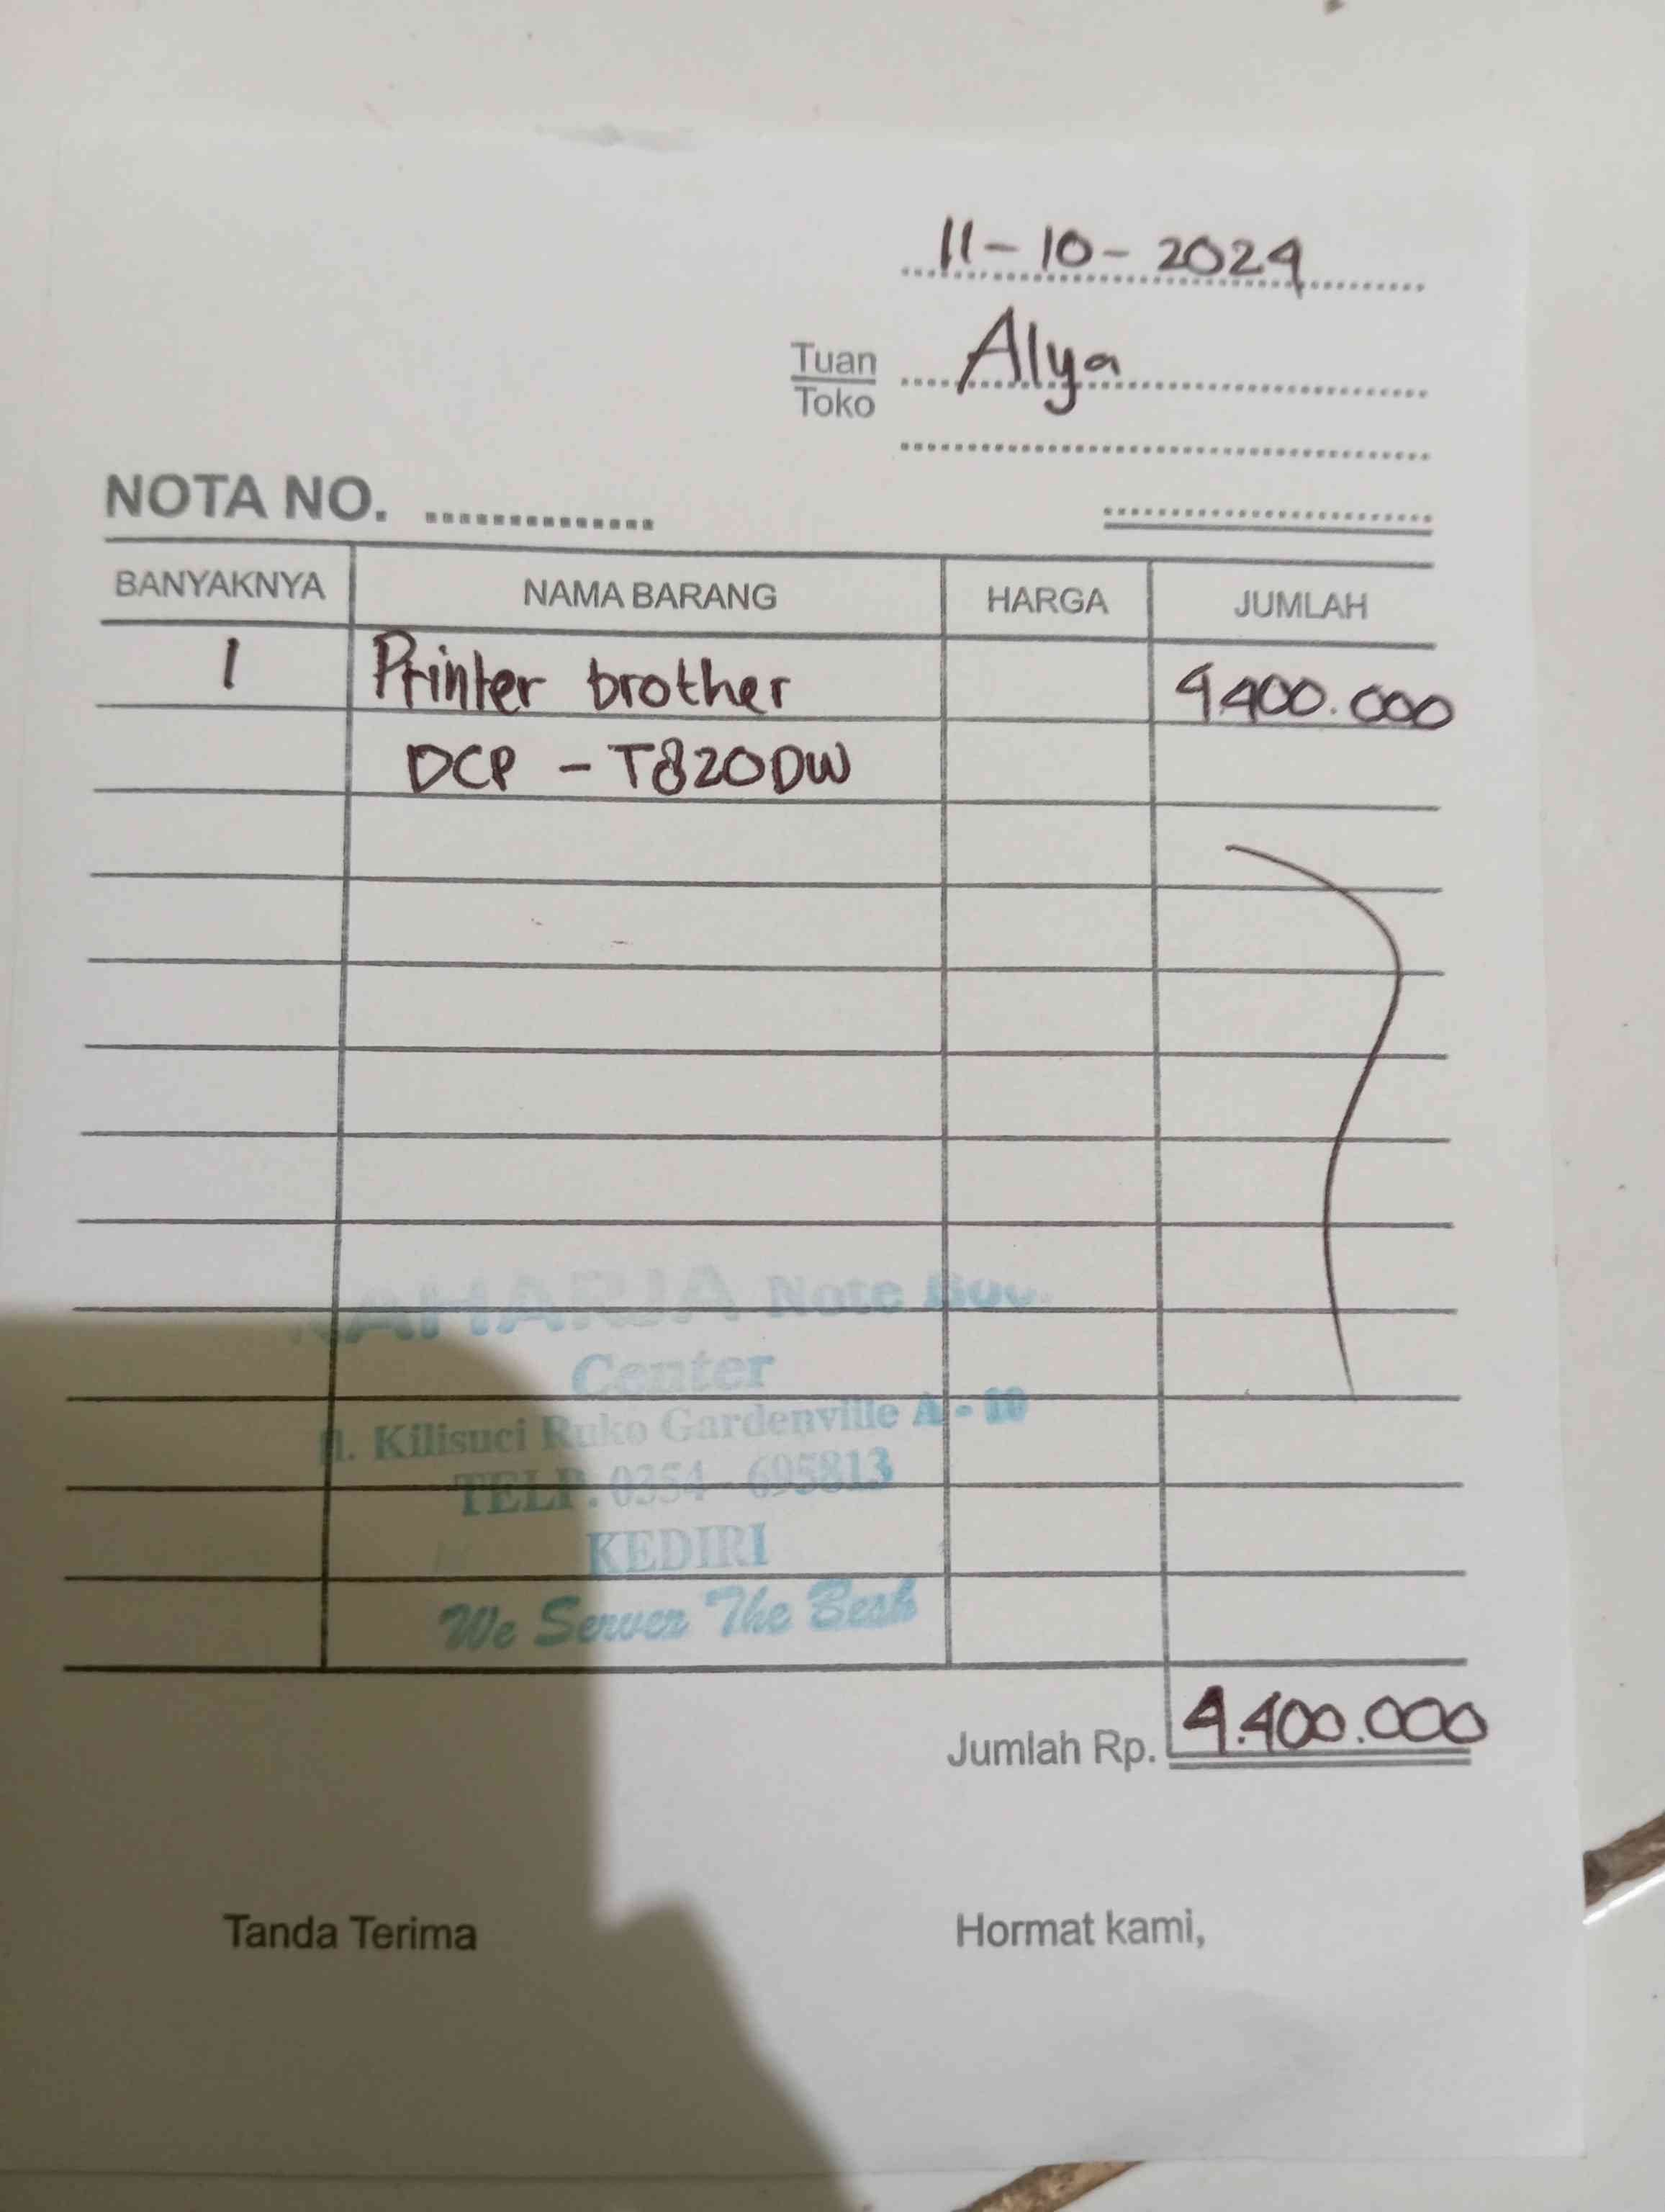 11-10-2024
Tuan
Alya
Toko
NOTA NO.
BANYAKNYA NAMA BARANG HARGA JUMLAH
1 Printer brother 4400.000
DCP - T820DW
RAHARJA Note Book
Center
Jl. Kilisuci Ruko Gardenville A - 10
TELP. 0354 - 695813
KEDIRI
We Server The Best
Jumlah Rp. 4.400.000
Tanda Terima Hormat kami,